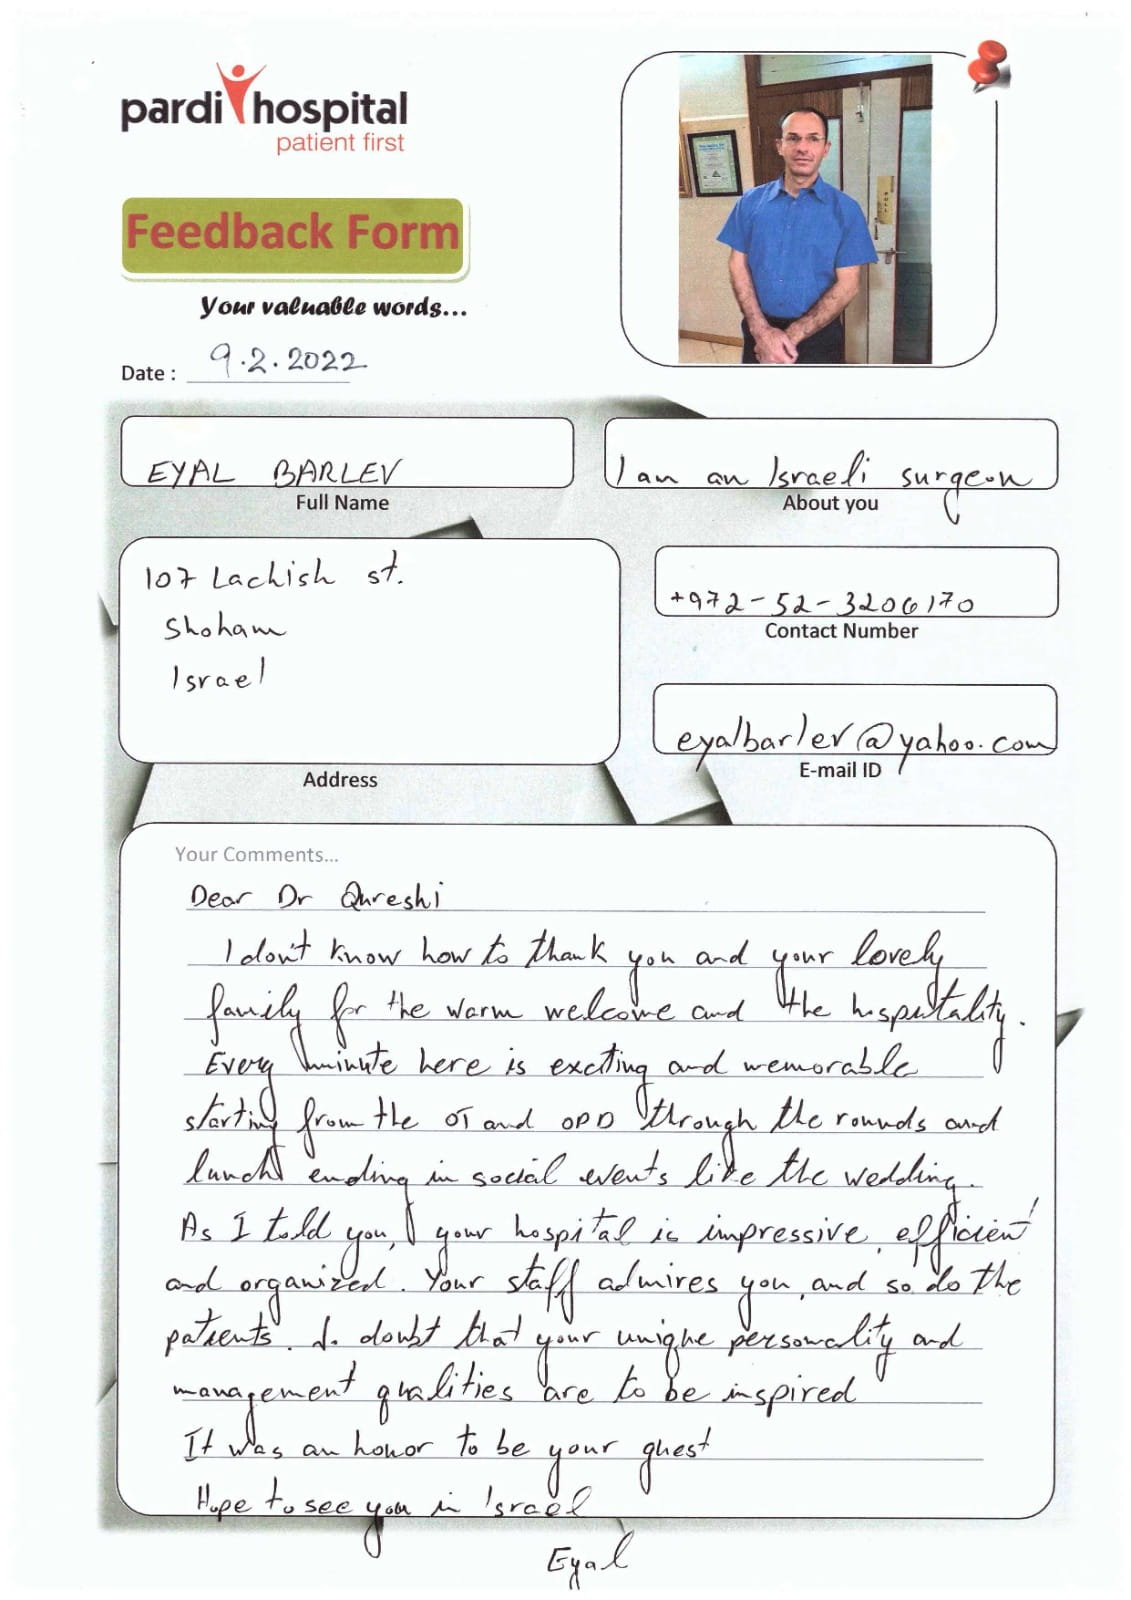 pardi hospital
patient first
Feedback Form
Your valuable words...
Date : 9.2.2022
EYAL BARLEV
Full Name
I am an Israeli surgeon
About you
107 Lachish st.
Shoham
Israel
Address
+972-52-3206170
Contact Number
eyalbarlev@yahoo.com
E-mail ID
Your Comments...
Dear Dr Qureshi
I don't know how to thank you and your lovely
family for the warm welcome and the hospitality.
Every minute here is exciting and memorable
starting from the OT and OPD through the rounds and
lunch ending in social events like the wedding.
As I told you, your hospital is impressive, efficient
and organized. Your staff admires you, and so do the
patients. doubt that your unique personality and
management qualities are to be inspired
It was an honor to be your guest
Hope to see you in Israel
Eyal